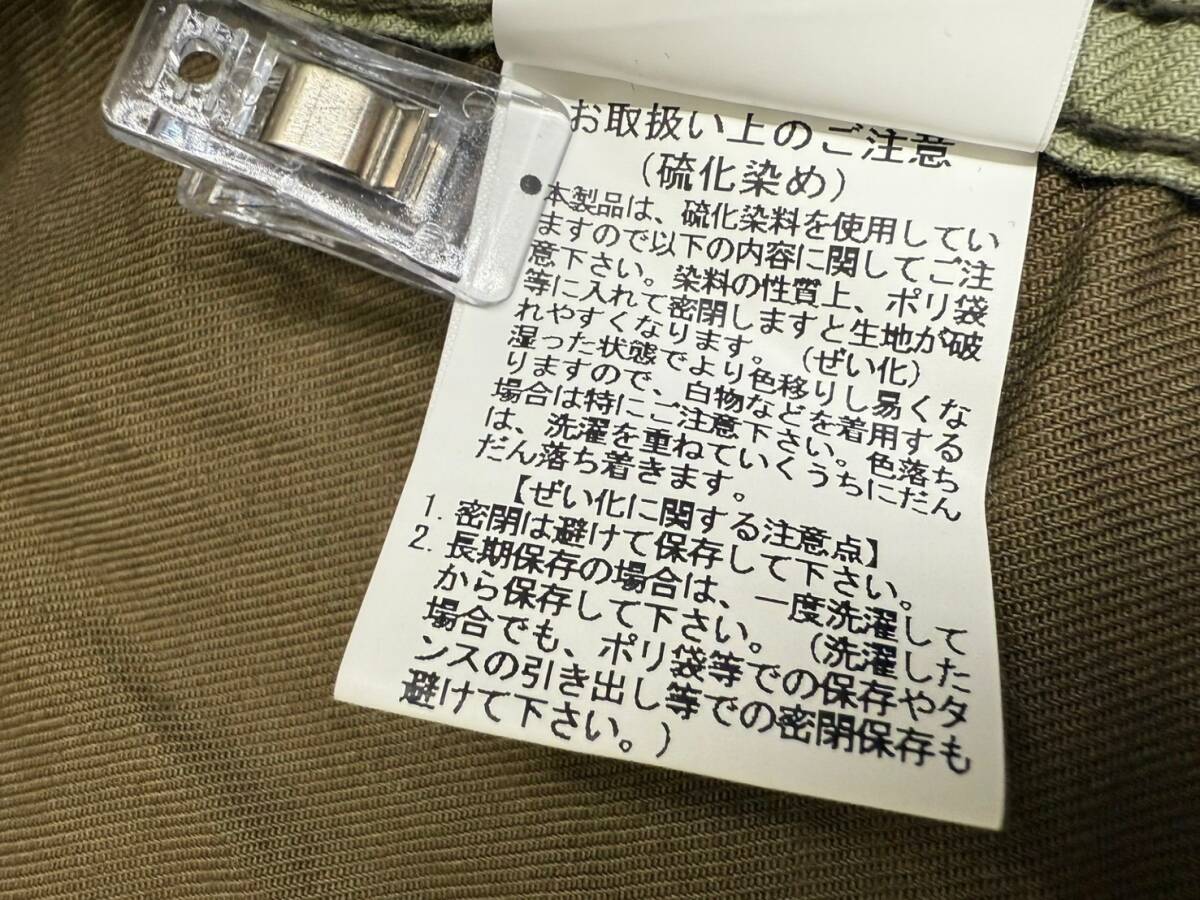 お取扱い上のご注意
(硫化染め)
●本製品は、硫化染料を使用してい
ますので以下の内容に関してご注
意下さい。染料の性質上、ポリ袋
等に入れて密閉しますと生地が破
れやすくなります。(ぜい化)
湿った状態でより色移りし易くな
りますので、白物などを着用する
場合は特にご注意下さい。色落ち
は、洗濯を重ねていくうちにだん
だん落ち着きます。
【ぜい化に関する注意点】
1. 密閉は避けて保存して下さい。
2. 長期保存の場合は、一度洗濯して
から保存して下さい。(洗濯した
場合でも、ポリ袋等での保存やタ
ンスの引き出し等での密閉保存も
避けて下さい。)